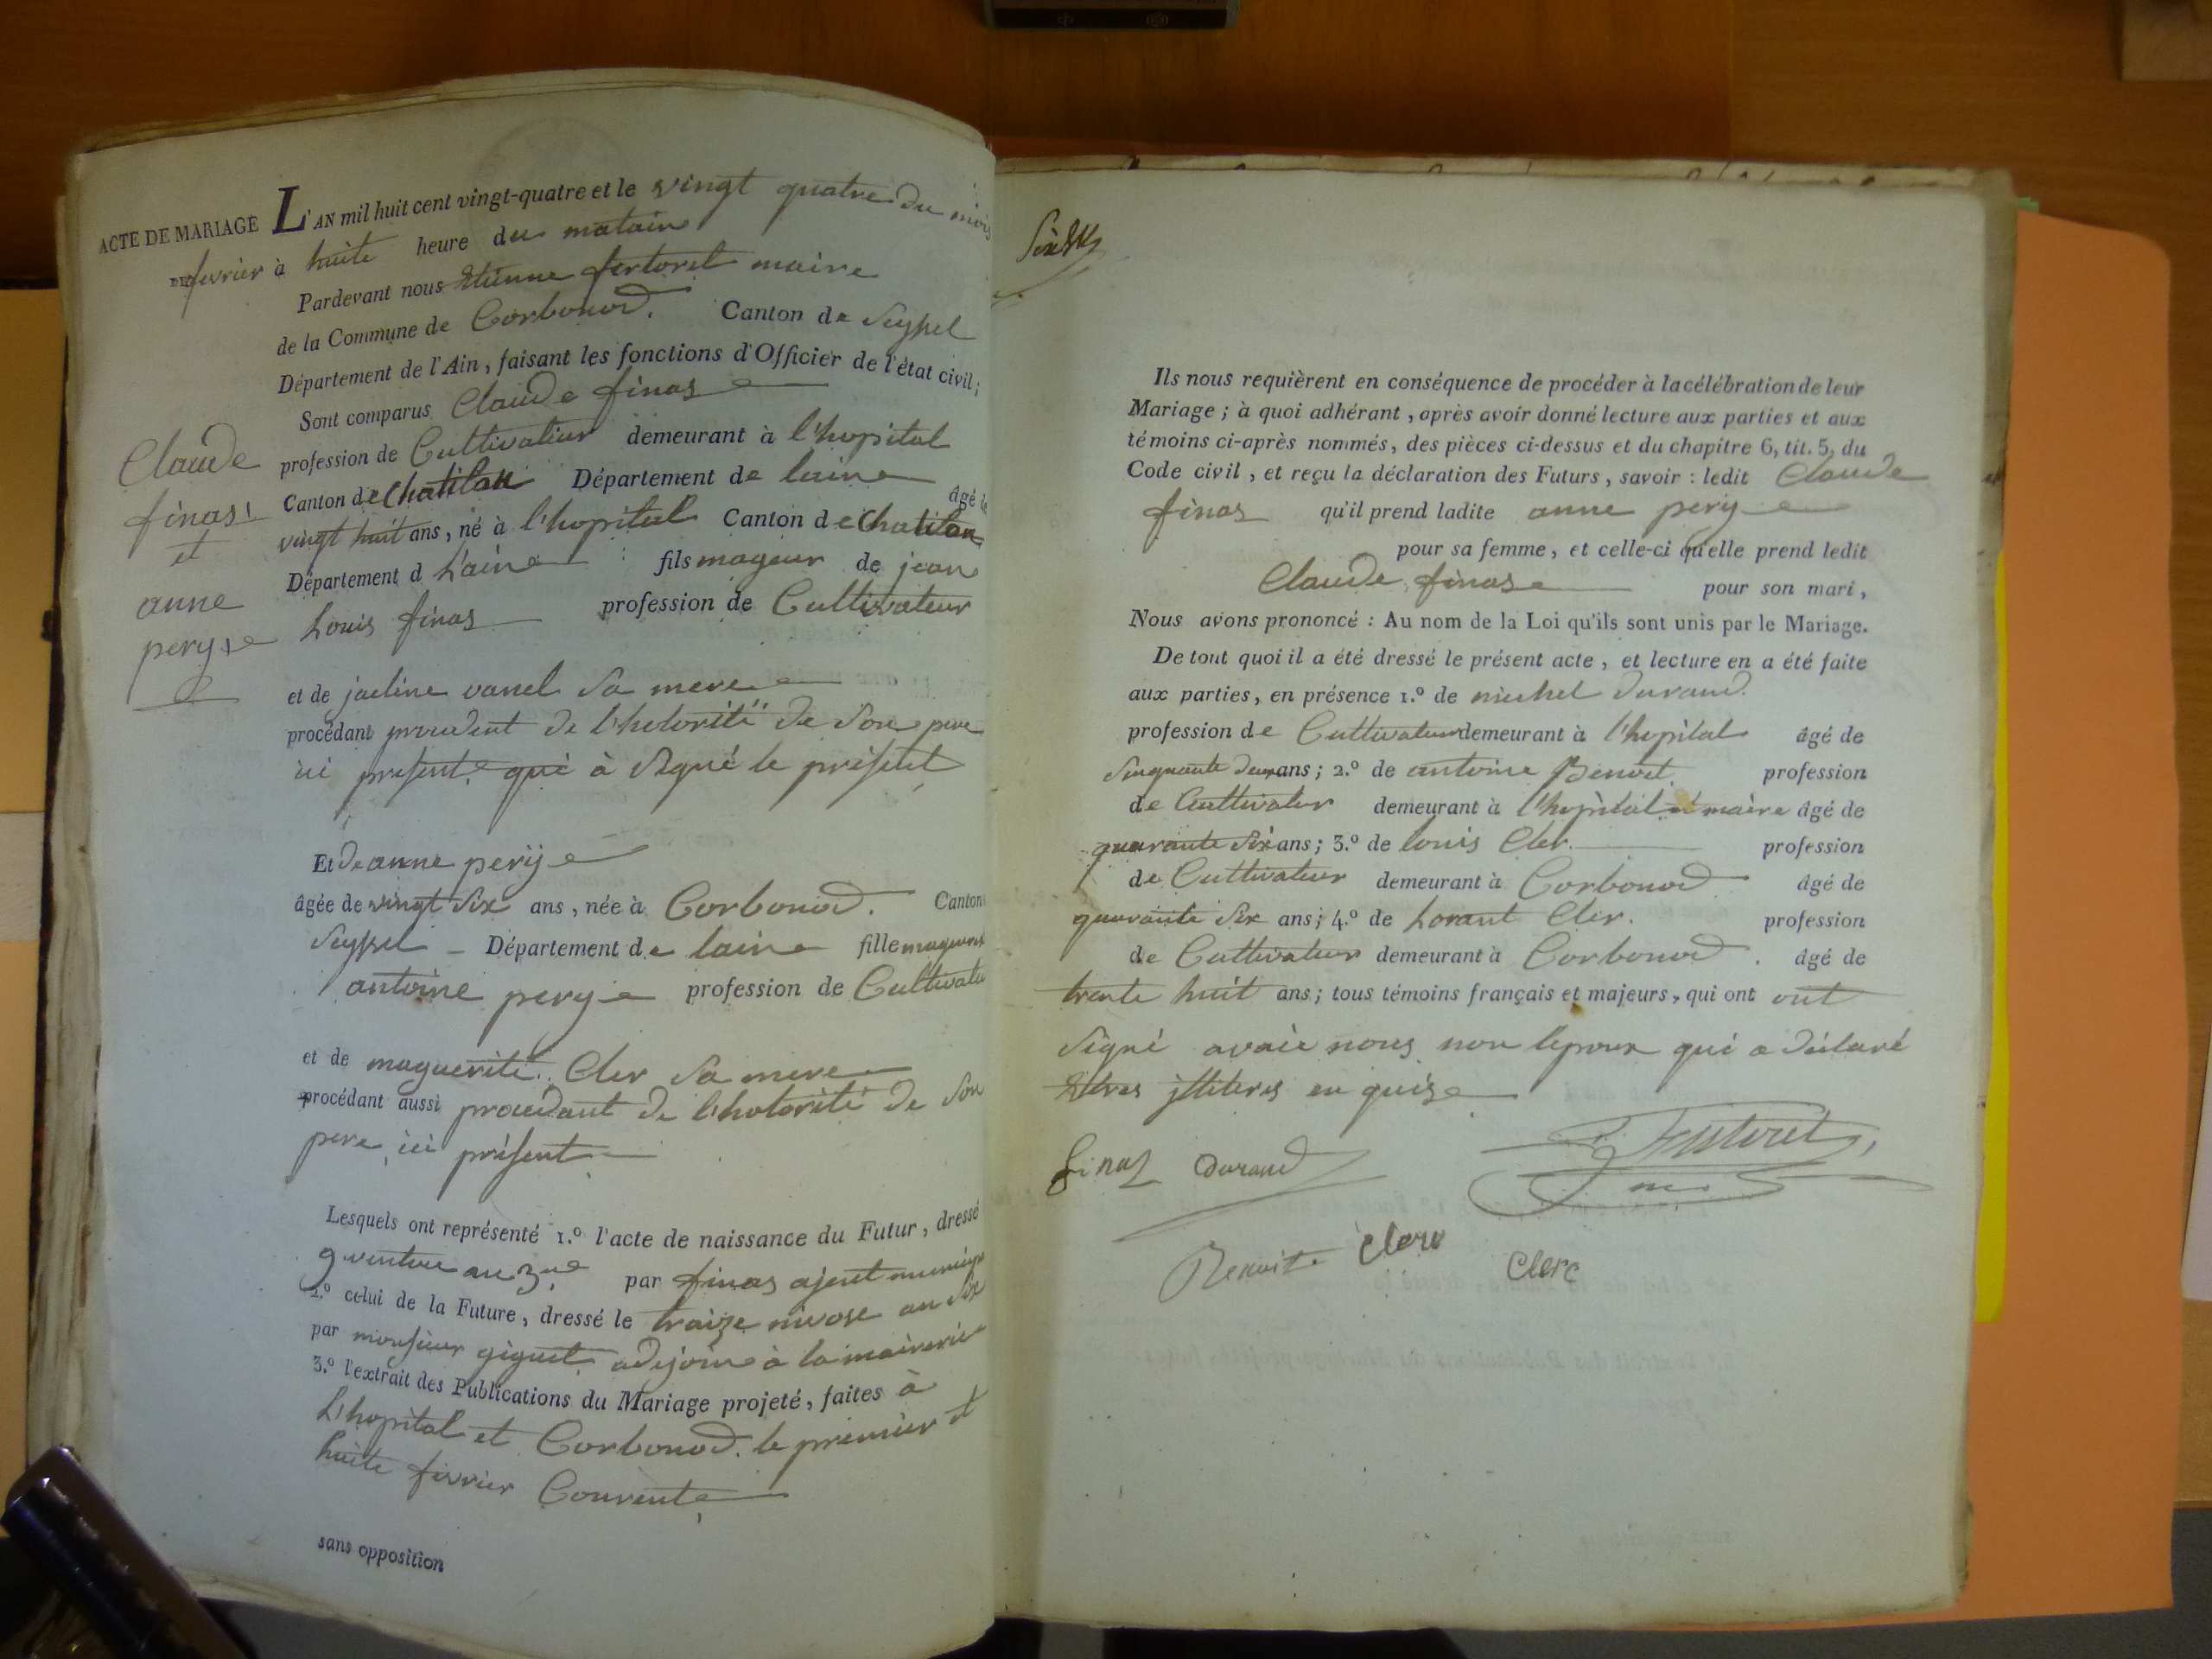 ACTE DE MARIAGE L'AN mil huit cent vingt-quatre et le vingt quatre du mois
DE fevrier à huite heure du matain
Pardevant nous Etienne fertoret maire
de la Commune de Corbonod. Canton de Seyssel
Département de l'Ain, faisant les fonctions d'Officier de l'état civil;
Sont comparus Claude finas
profession de Cultivateur demeurant à l'hopital
Canton de Chatilon Département de laine âgé de
vingt huit ans, né à l'hopital Canton de Chatilon
Département d L'aine fils mageur de jean
Louis finas profession de Cultivateur
et de jacline vanel Sa mere
procédant procedent de l'hotorité de Son pere
ici present qui à Signé le présent
Claude
finas
et
anne
pery
Et De anne pery
âgée de vingt Six ans, née à Corbonod. Canton
Seyssel Département de laine fille mageure
antoine pery profession de Cultivateu
et de maguerite Cler Sa mere
procédant aussi procédant de l'hotorité de Son
pere ici présent
Lesquels ont représenté 1.º l'acte de naissance du Futur, dressé
9 ventose an 3me par finas ajent municip
2.º celui de la Future, dressé le traize nivose an Six
par monsieur giguet adejoin à la mairerie
3.º l'extrait des Publications du Mariage projeté, faites à
L'hopital et Corbonod. le premier et
huite fevrier Courent
sans opposition
Ils nous requièrent en conséquence de procéder à la célébration de leur
Mariage; à quoi adhérant, après avoir donné lecture aux parties et aux
témoins ci-après nommés, des pièces ci-dessus et du chapitre 6, tit. 5, du
Code civil, et reçu la déclaration des Futurs, savoir: ledit Claude
finas qu'il prend ladite anne pery
pour sa femme, et celle-ci qu'elle prend ledit
Claude finas pour son mari,
Nous avons prononcé: Au nom de la Loi qu'ils sont unis par le Mariage.
De tout quoi il a été dressé le présent acte, et lecture en a été faite
aux parties, en présence 1.º de michel durand
profession de Cultivateur demeurant à l'hopital âgé de
Sinquante deux ans; 2.º de antoine Benoit profession
de Cultivateur demeurant à l'hopital et maire âgé de
quarante Six ans; 3.º de louis Cler profession
de Cultivateur demeurant à Corbonod âgé de
quarante Six ans; 4.º de Lorant Cler. profession
de Cultivateur demeurant à Corbonod. âgé de
trante huit ans; tous témoins français et majeurs, qui ont ont
Signé avaie nous non lepoux qui a déclaré
Etres jlliteres en quise
finas Durand
Benoit Clerc Clerc